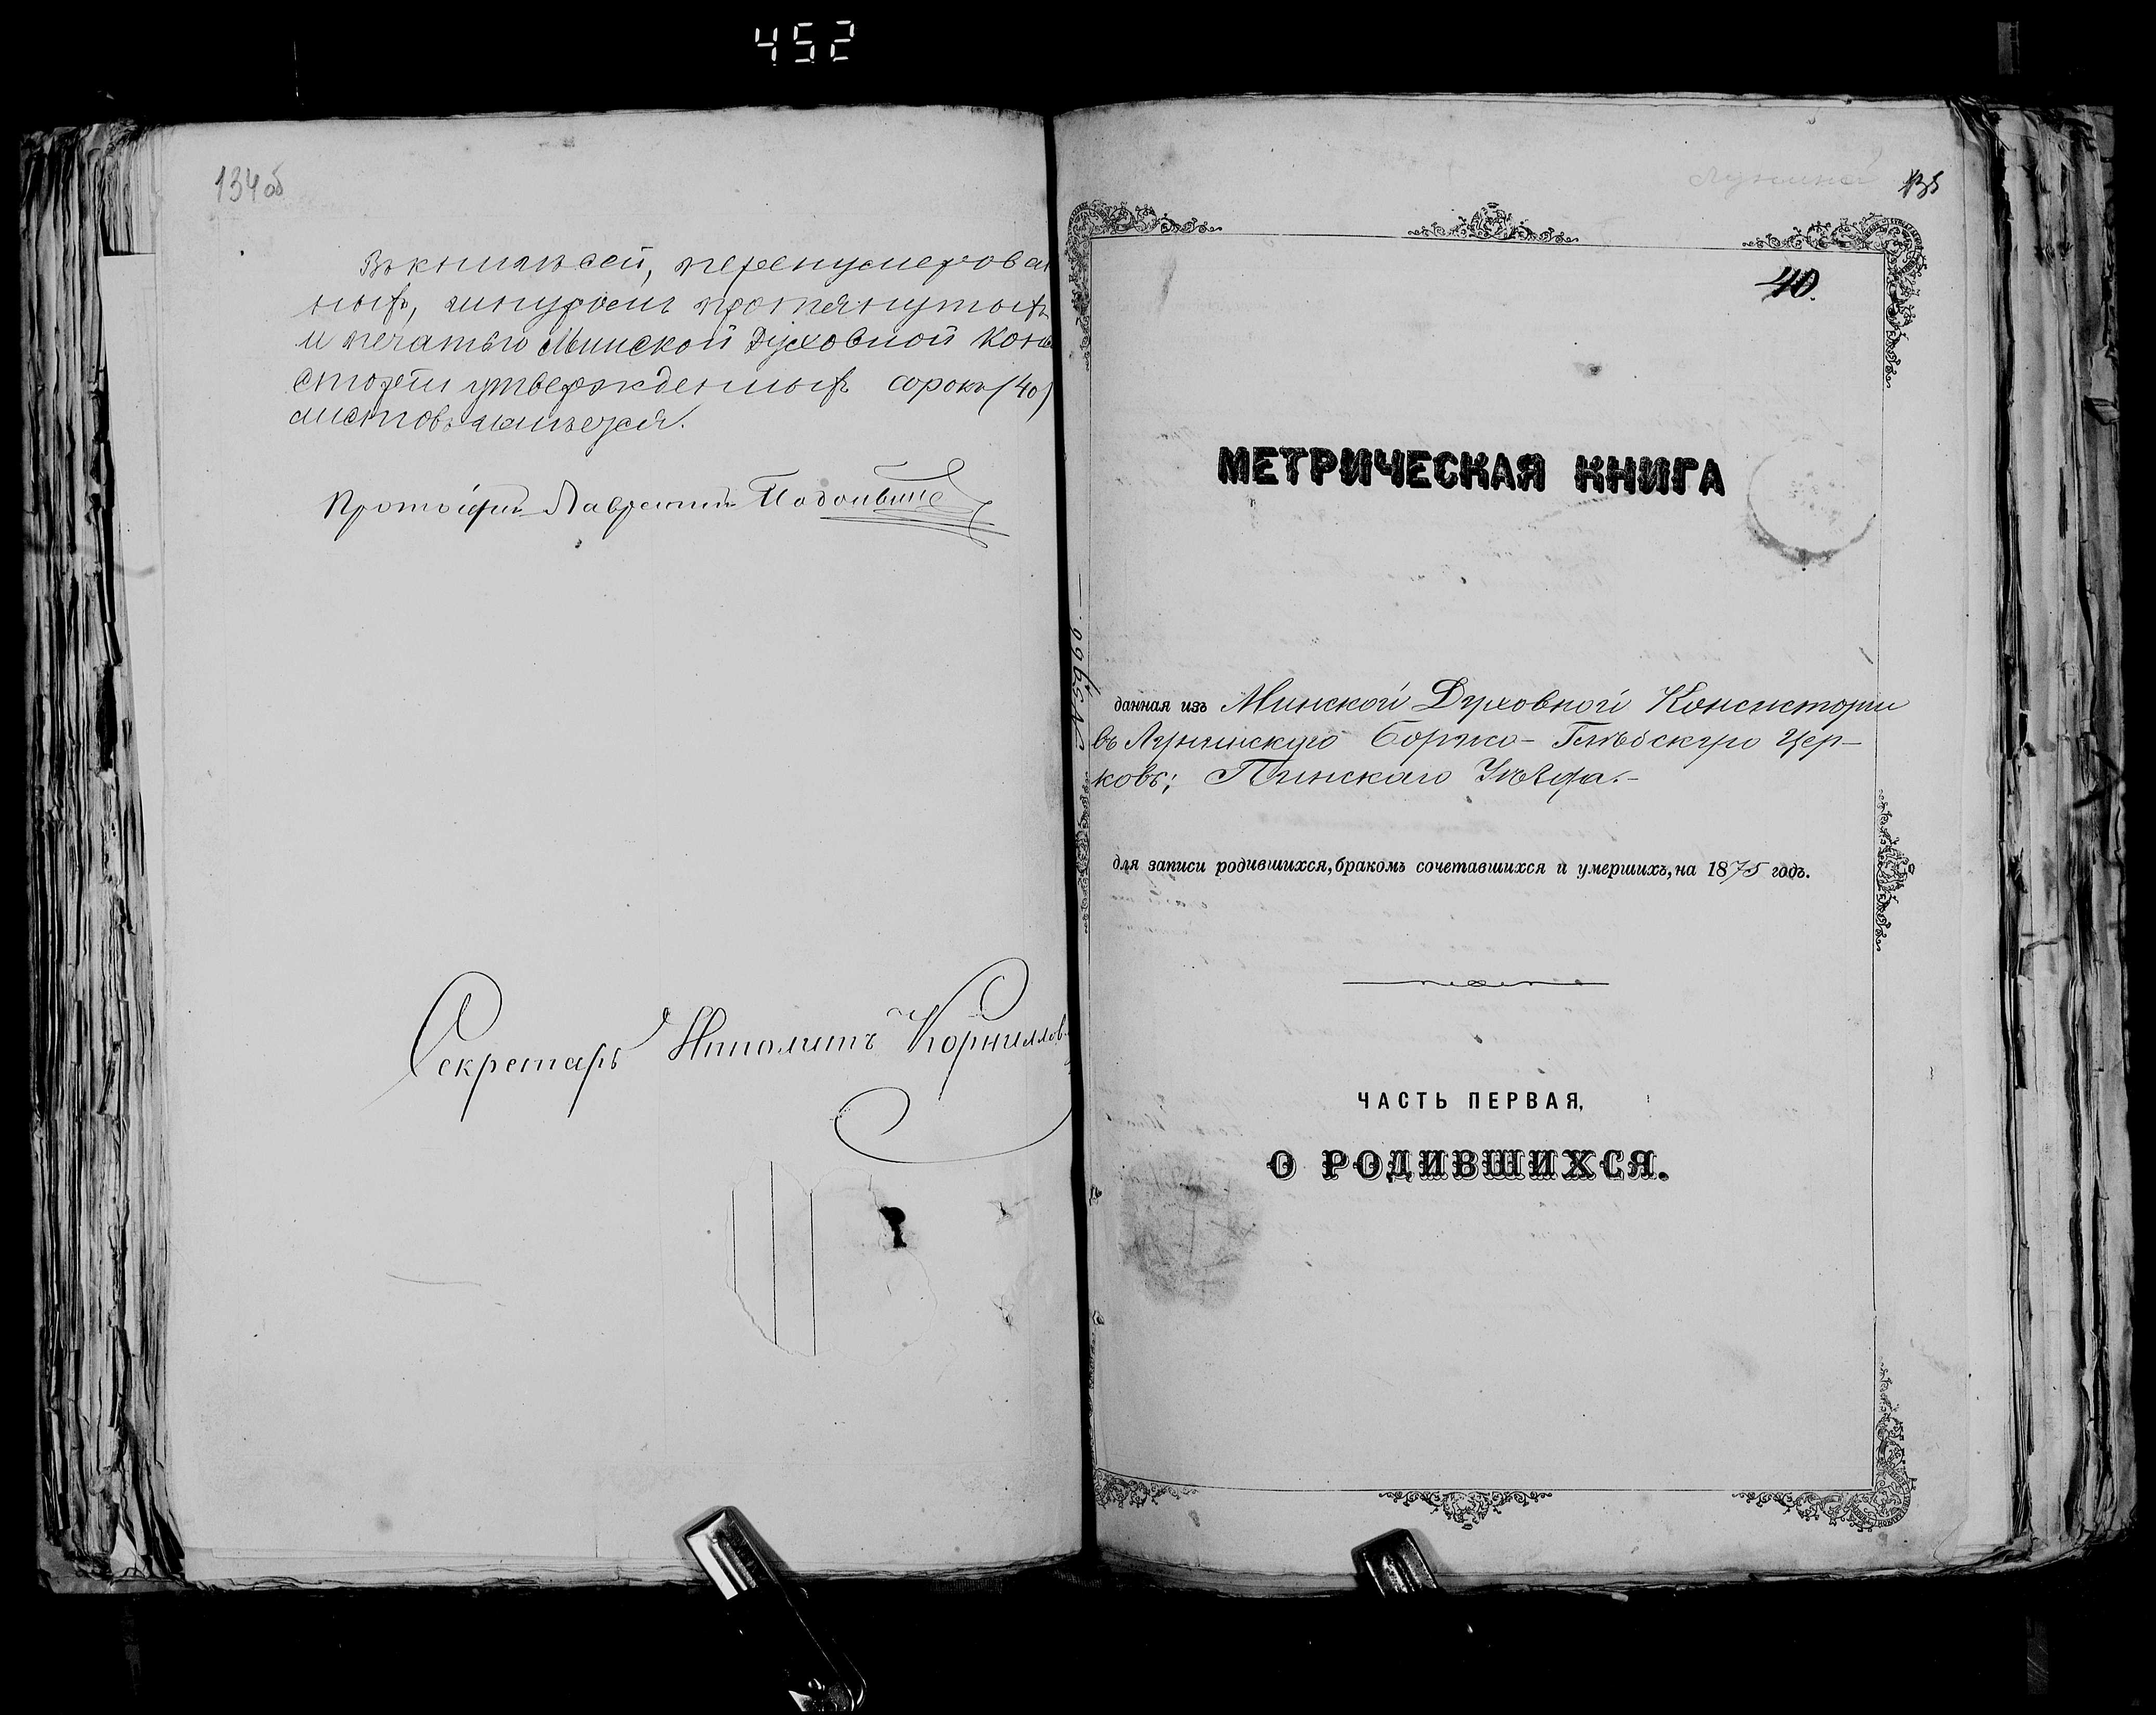 452
134 об
Въ книгѣ сей, перенумерован
ныхъ, шнуромъ протянутыхъ
и печатью Минской Духовной Конси
сторіи утвержденныхъ сорокъ (40)
листовъ имѣется.
Протоіерей Лаврентій
Секретарь Ипполитъ Корнилов
Лунина 135
40.
МЕТРИЧЕСКАЯ КНИГА
данная изъ Минской Духовной Консисторіи
въ Лунинскую Борисо-Глѣбскую Цер-
ковь; Пинскаго Уѣзда.-
для записи родившихся, бракомъ сочетавшихся и умершихъ, на 1875 годъ.
ЧАСТЬ ПЕРВАЯ,
О РОДИВШИХСЯ.